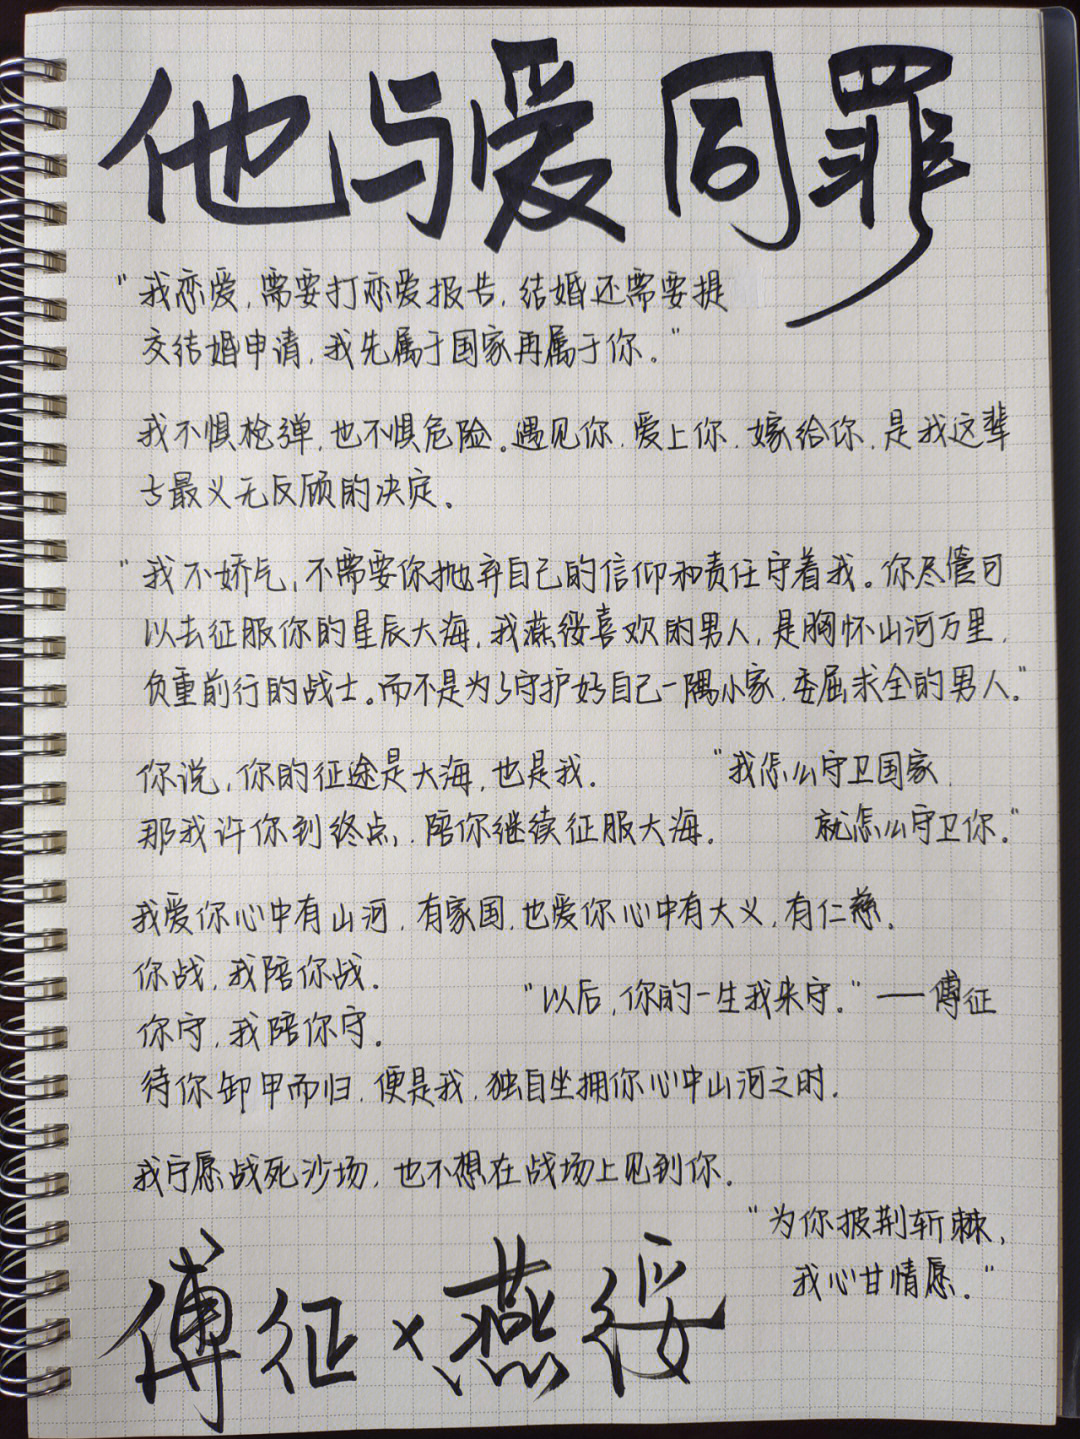 他与爱同罪
"我恋爱,需要打恋爱报告,结婚还需要提
交结婚申请,我先属于国家再属于你。"
我不惧枪弹,也不惧危险。遇见你.爱上你.嫁给你.是我这辈
子最义无反顾的决定。
"我不娇气,不需要你抛弃自己的信仰和责任守着我。你尽管可
以去征服你的星辰大海,我燕绥喜欢的男人,是胸怀山河万里,
负重前行的战士。而不是为了守护好自己一隅小家,委屈求全的男人。"
你说,你的征途是大海,也是我.
那我许你到终点,陪你继续征服大海.
"我怎么守卫国家,
就怎么守卫你."
我爱你心中有山河,有家国,也爱你心中有大义,有仁慈.
你战,我陪你战.
你守,我陪你守.
"以后,你的一生我来守."——傅征
待你卸甲而归,便是我,独自坐拥你心中山河之时.
我宁愿战死沙场,也不想在战场上见到你.
"为你披荆斩棘,
我心甘情愿."
傅征×燕绥